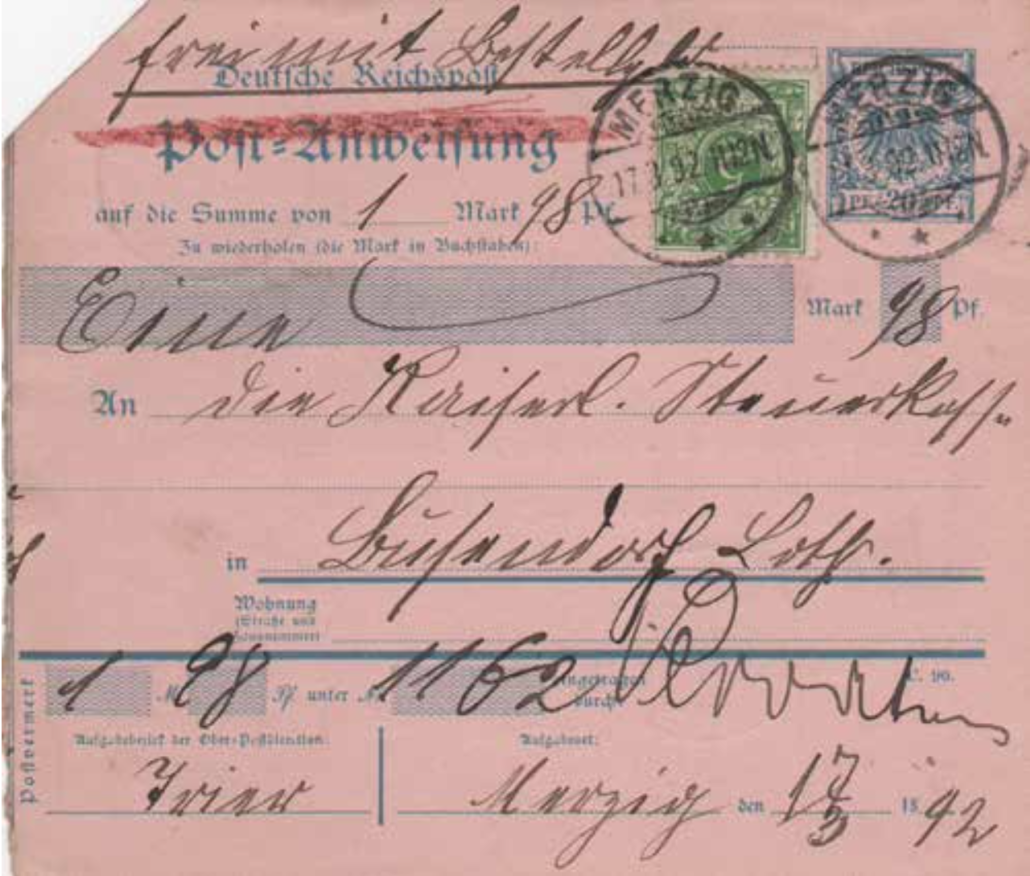 frei mit Bestellgeld
Deutsche Reichspost
Post-Anweisung
MERZIG
17 3 92 11-12N
MERZIG
92 11-12N
5
20 PF.
auf die Summe von 1 Mark 98 Pf.
Zu wiederholen (die Mark in Buchstaben):
Eine Mark 98 Pf.
An die Kaiserl. Steuerkasse
in Busendorf Loth.
Wohnung
(Straße und
Hausnummer)
Postvermerk
1 M 98 Pf. unter № 1162 Eingetragen
durch:
C. 90.
Aufgabebezirk der Ober-Postdirection: Aufgabeort:
Trier Merzig den 17/3 18 92